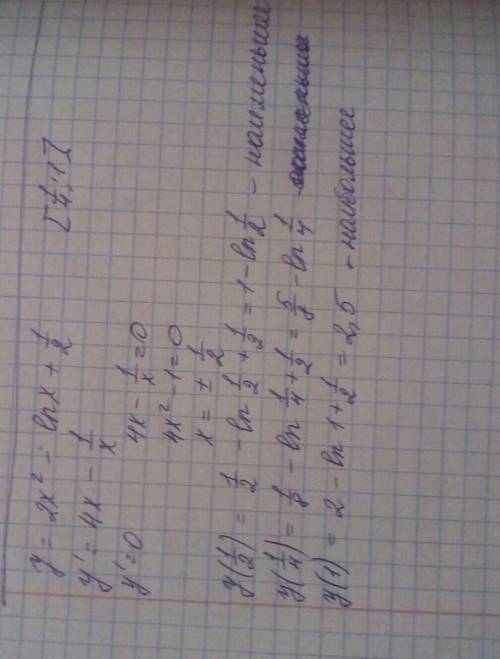 y = 2x² - ln x + 1/2 [1/4; 1]
y' = 4x - 1/x
y' = 0 4x - 1/x = 0
4x² - 1 = 0
x = ± 1/2
y(1/2) = 1/2 - ln 1/2 + 1/2 = 1 - ln 1/2 - наименьшее
y(1/4) = 1/8 - ln 1/4 + 1/2 = 5/8 - ln 1/4
y(1) = 2 - ln 1 + 1/2 = 2,5 - наибольшее